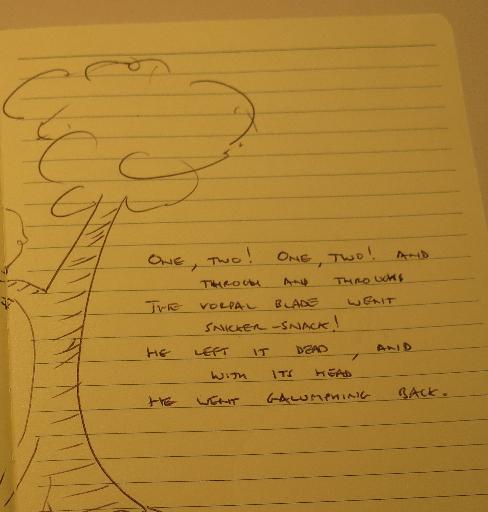 ONE, TWO! ONE, TWO! AND
THROUGH AND THROUGH
THE VORPAL BLADE WENT
SNICKER-SNACK!
HE LEFT IT DEAD, AND
WITH ITS HEAD
HE WENT GALUMPHING BACK.